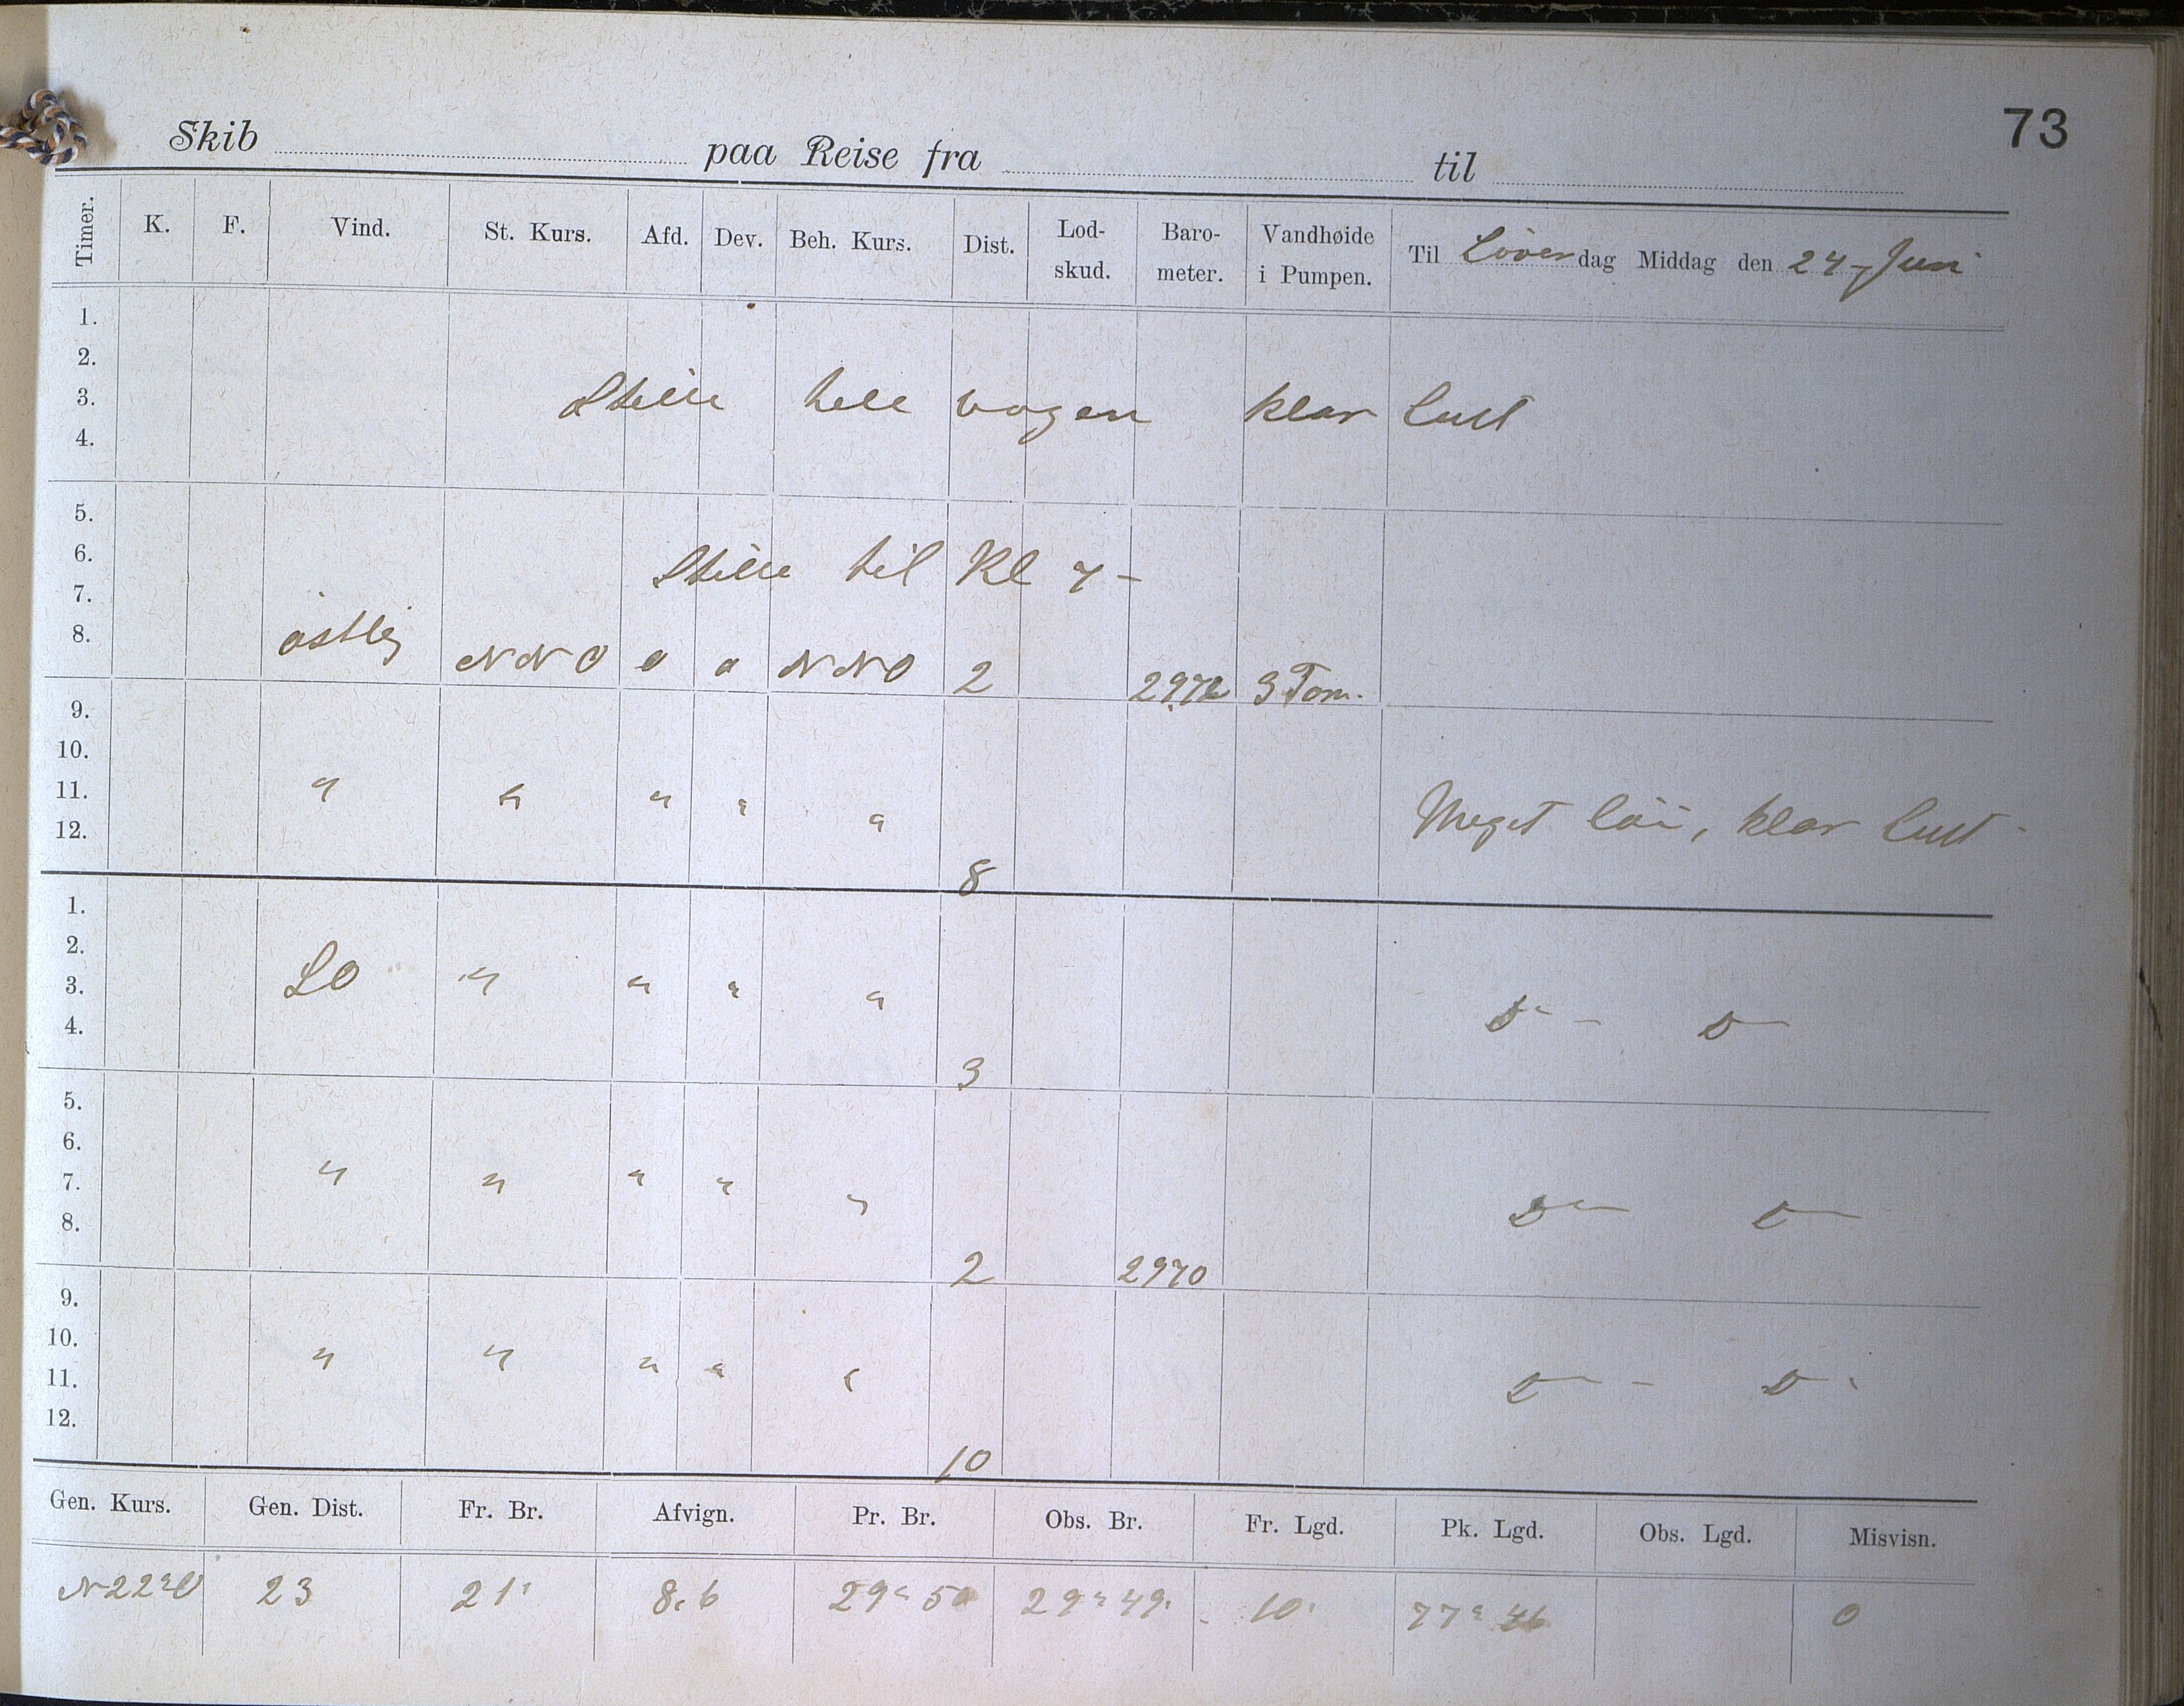 73
Skib paa Reise fra til
Timer. K. F. Vind. St. Kurs. Afd. Dev. Beh. Kurs. Dist. Lod-skud. Baro-meter. Vandhøide i Pumpen. Til Löverdag Middag den 24 Juni
1.
2.
3. Stille hele vagen klar luft
4.
5.
6. Stille til Kl 7-
7.
8. östlig NNO 0 0 NNO 2 2972 3 Tom.
9.
10.
11. " " " " " Meget löi, klar luft
12. 8
1.
2.
3. SO " " " " D - D
4. 3
5.
6.
7. " " " " " D - D
8. 2 2970
9.
10.
11. " " " " " D - D
12. 10
Gen. Kurs. Gen. Dist. Fr. Br. Afvign. Pr. Br. Obs. Br. Fr. Lgd. Pk. Lgd. Obs. Lgd. Misvisn.
N22°O 23 21' 8.6 29° 50 29° 49' 10' 77° 46 0